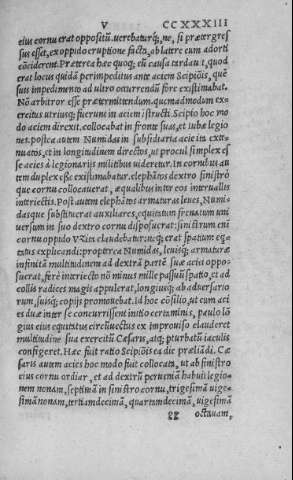 V CCXXXIII
eius cornu erat oppositũ. uerebaturq;, ne, si prætergres
sus esset, ex oppido eruptione facta, ab latere eum adorti
cõciderent. Præterea hæc quoq; eũ causa tardaut, quod
erat locus quidã perimpeditus ante aciem Scipiõis, quẽ
suis impedimento ad ultro occurrendũ fore existimabat.
Nõ arbitror esse prætermittendum, quemadmodum ex-
ercitus utriusq; fuerint in aciem istructi. Scipio hoc mo
do aciem direxit. collocabat in fronte suas, et Iubæ legio
nes. postea autem Numidas in subsidiaria acie ita exte
nuatos, et in longitudinem directos, ut procul simplex es
se acies à legionarijs militibus uideretur. In cornibus au
tem duplex eße existimabatur. elephãtos dextro sinistró
que cornu collocauerat, æqualibus inter eos interuallis
interiectis. Post autem elephãtos armaturas leues, Numi
dasque substituerat auxiliares. equitatum frenatum uni
uersum in suo dextro cornu disposuerat: sinistrum eni
cornu oppido Vzita claudebatur: neq; erat spatium eq̃
tatus explicandi: propterea Numidas, leuisq; armaturæ
infinitã multitudinem ad dextrã partẽ suæ aciei oppo-
suerat, ferè interiecto nõ minus mille passuũ spatio, et ad
collis radices magis appulerat, longiusq; ab aduersario
rum, suisq; copijs promouebat. Id hoc cõsilio, ut cum aci
es duæ inter se concurrissent initio certaminis, paulo lõ
gius eius equitatus circũuectus ex improuiso clauderet
multitudine sua exercitũ Cæsaris, atq; pturbatũ iaculis
configeret. Hæc fuit ratio Scipiõis ea die præliãdi. Cæ
saris autem acies hoc modo fuit collocata, ut ab sinistro
eius cornu ordiar, et ad dextrũ perueniã habuit legio-
nem nonam, septimã in sinistro cornu, trigesimã uige-
simã nonam, tertiamdecimã, quartamdecimã, uigesimã
gg octauam,